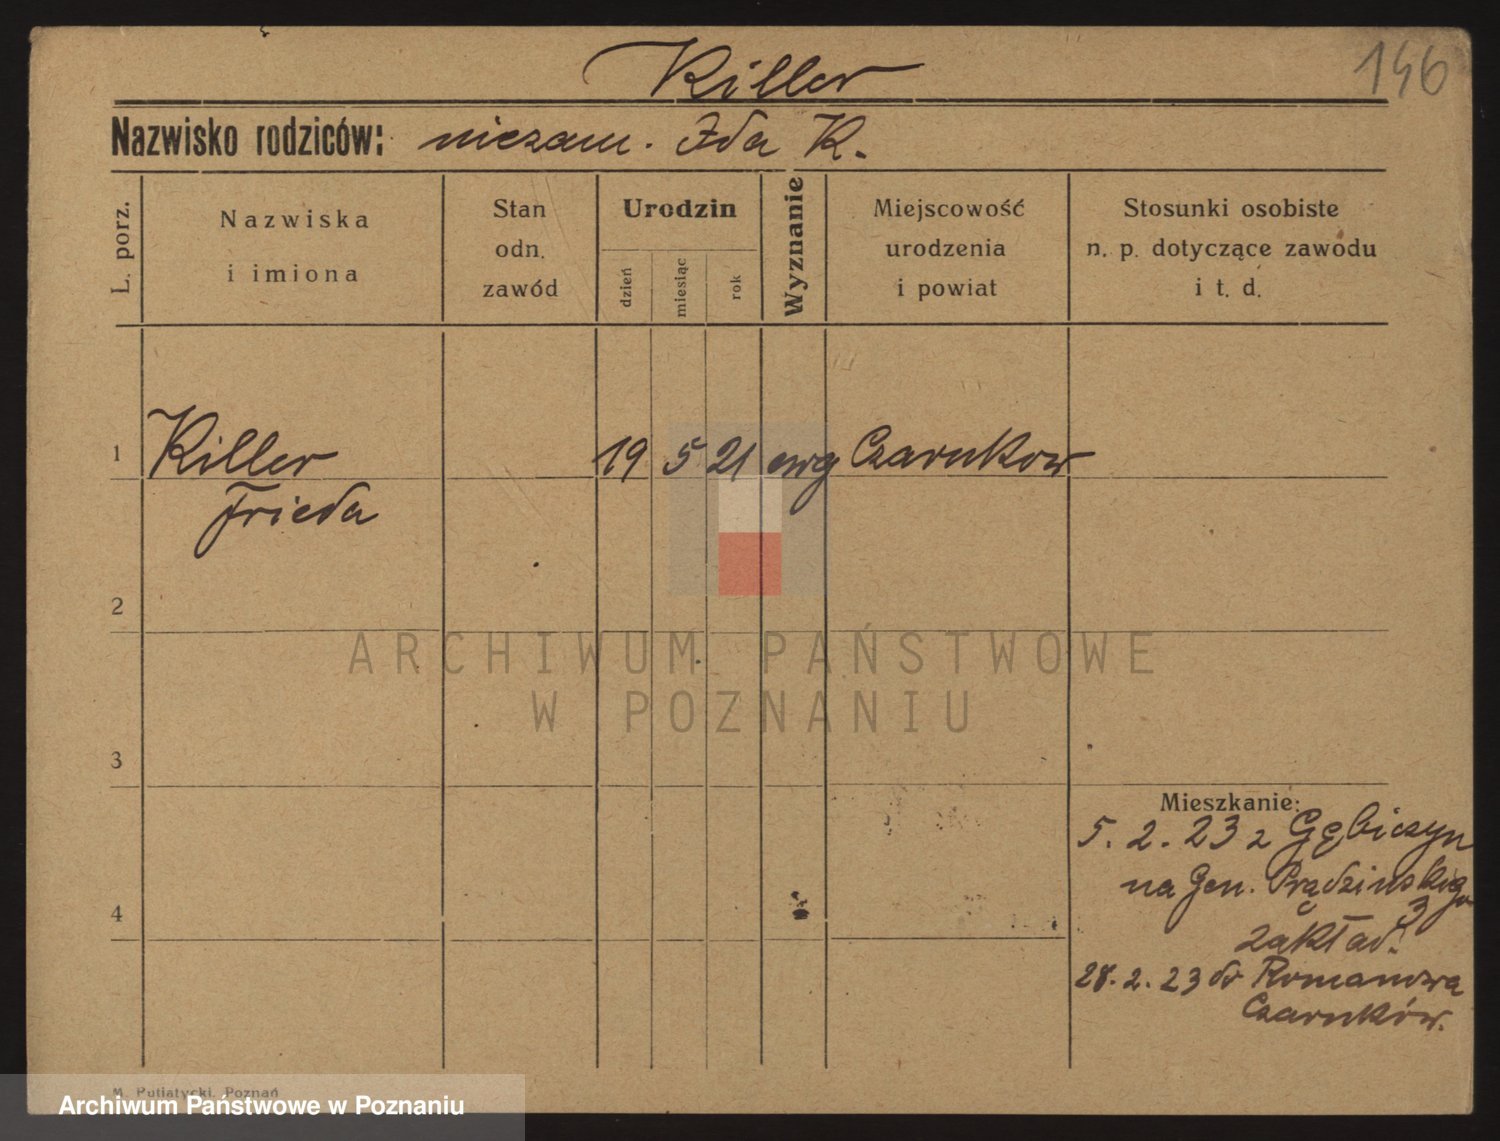 Killer
146
Nazwisko rodziców: niezam. Ida K.
L. porz.
Nazwiska
i imiona
Stan
odn.
zawód
Urodzin
dzień
miesiąc
rok
Wyznanie
Miejscowość
urodzenia
i powiat
Stosunki osobiste
n. p. dotyczące zawodu
i t. d.
1 Killer 19 5 21 ewg Czarnkow
Frieda
2
ARCHIWUM PAŃSTWOWE
W POZNANIU
3
Mieszkanie:
5. 2. 23 z Gębiczyn
na Gen. Prądzińskiego
3
zakład.
4
28. 2. 23 do Romanowa
Czarnków.
M. Putiatycki, Poznań
Archiwum Państwowe w Poznaniu